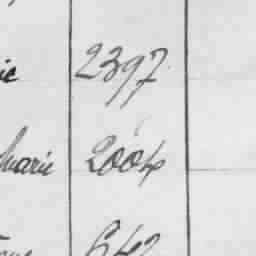 ie 2397
Marie 2004
642